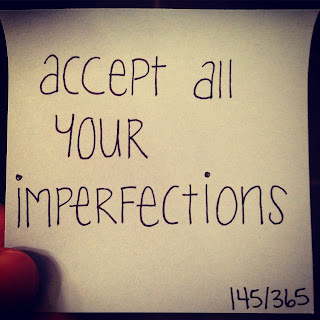 accept all
YOUR
imPERFECTiONS
145/365